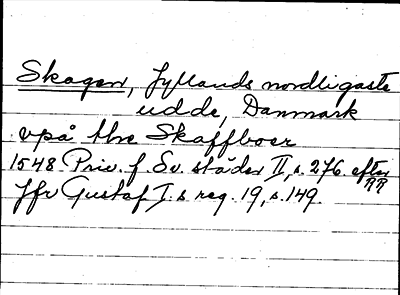 Skagen, Jyllands nordligaste
udde, Danmark
vpå the Skaffboer
1548 Priv. f. Sv. städer II, s. 276. efter RR
Jfr Gustaf I:s reg. 19, s. 149.